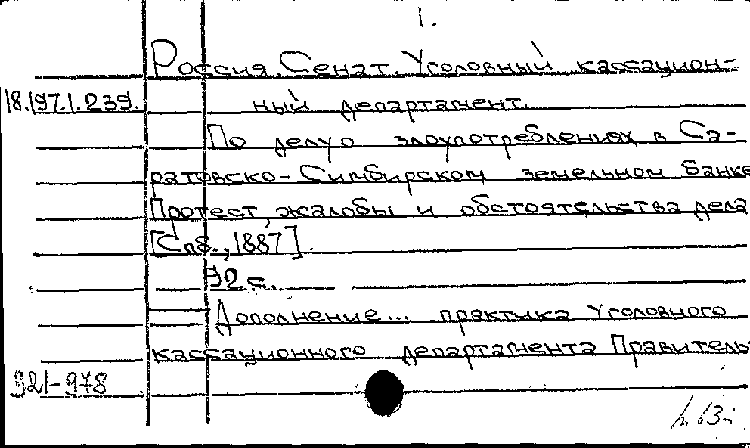 1.
Россия. Сенат. Уголовный кассацион-
18.197.1.239. ный департамент.
По делу о злоупотреблениях в Са-
ратовско-Симбирском земельном банке
Протест, жалобы и обстоятельства дела
[Спб., 1887]
92 с.
Дополнение... практика Уголовного
кассационного департамента Правитель
921-978